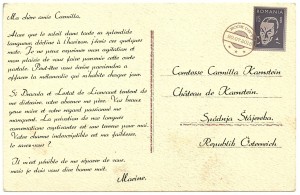 Ma chère amie Carmilla.
Alors que le soleil dans toute sa splendeur
languissante décline à l'horizon, j'écris ces quelques
mots. Je ne peux exprimer mon agitation et
mon plaisir de vous faire parvenir cette carte
postale. Peut-être vous aidera parviendra à
effacer la mélancolie qui m'habite chaque jour.
Si Dracula et Lestat de Lioncourt tentent de
me distraire votre absence me pèse. Vos beaux
yeux noirs et votre regard langoureux me
passionnent. La privation de vos longues
conversations captivantes est une torture pour moi.
Votre charme indescriptible est ma faiblesse,
le savez-vous ?
Il m'est pénible de me séparer de vous,
mais je dois vous dire bonne nuit.
Marine.
ROMANIA
Comtesse Carmilla Karnstein
Château de Karnstein.
Spodnja Štajerska.
Republik Österreich